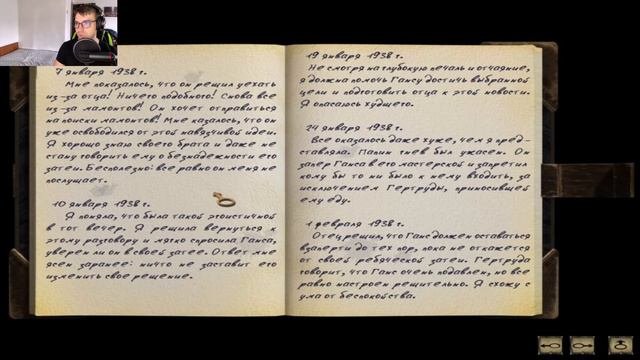 7 января 1938 г.
Мне показалось, что он решил уехать
из-за отца! Ничего подобного! Снова все
из-за мамонтов! Он хочет отправиться
на поиски мамонтов! Мне казалось, что он
уже освободился от этой навязчивой идеи.
Я хорошо знаю своего брата и даже не
стану говорить ему о безнадежности его
затеи. Бесполезно: все равно он меня не
послушает.
10 января 1938 г.
Я поняла, что была такой эгоистичной
в тот вечер. Я решила вернуться к
этому разговору и мягко спросила Ганса,
уверен ли он в своей затее. Ответ мне
ясен заранее: ничто не заставит его
изменить свое решение.
19 января 1938 г.
Не смотря на глубокую печаль и отчаяние,
я должна помочь Гансу достичь выбранной
цели и подготовить отца к этой новости.
Я опасаюсь худшего.
24 января 1938 г.
Все оказалось даже хуже, чем я пред-
ставляла. Папин гнев был ужасен. Он
запер Ганса в его мастерской и запретил
кому бы то ни было к нему входить, за
исключением Гертруды, приносившей
ему еду.
1 февраля 1938 г.
Отец решил, что Ганс должен оставаться
взаперти до тех пор, пока не откажется
от своей ребяческой затеи. Гертруда
говорит, что Ганс очень подавлен, но все
равно настроен решительно. Я схожу с
ума от беспокойства.